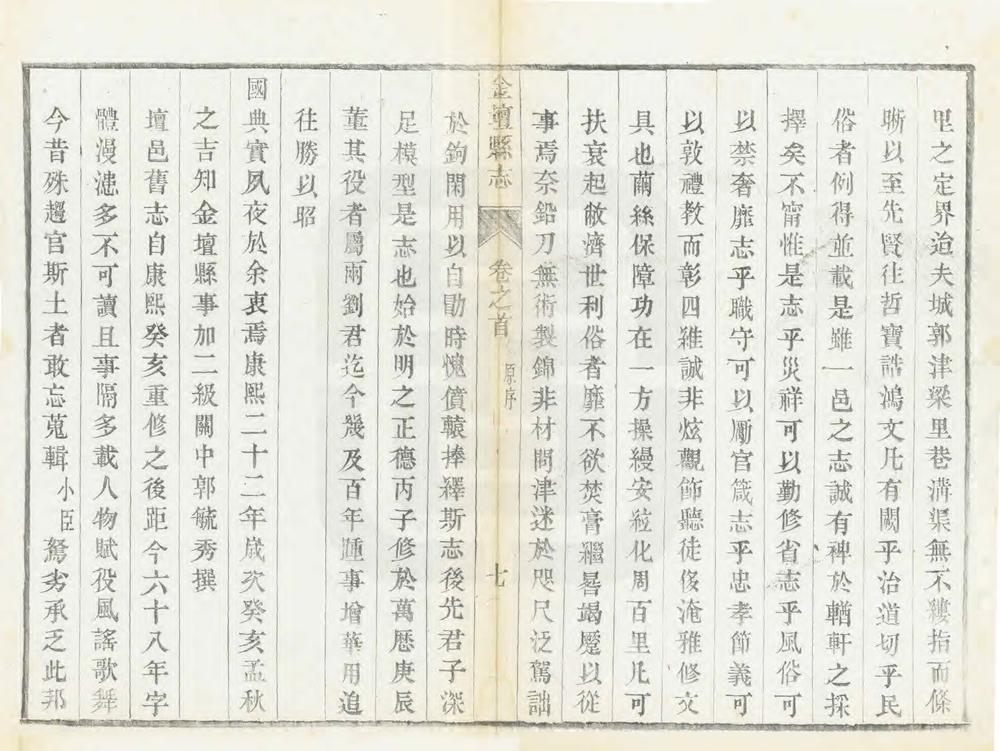 里之定界迨夫城郭津梁里巷溝渠無不縷指而條
晣以至先賢往哲寶誥鴻文凡有關乎治道切乎民
俗者例得並載是雖一邑之志誠有裨於輶軒之採
擇矣不甯惟是志乎災祥可以勤修省志乎風俗可
以禁奢靡志乎職守可以勵官箴志乎忠孝節義可
以敦禮教而彰四維誠非炫觀節聽徒侈淹雅修文
具也繭絲保障功在一方操縵安絃化周百里凡可
扶衰起敝濟世利俗者靡不欲焚膏繼晷竭蹷以從
事焉奈鉛刀無術製錦非材問津迷於咫尺泛駕詘
金壇縣志
卷之首
原序
七
於鉤閑用以自勖時愧僨轅捧繹斯志後先君子深
足模型是志也始於明之正德丙子修於萬歷庚辰
董其役者屬雨劉君迄今幾及百年踵事增華用追
往勝以昭
國典實夙夜於余衷焉康熙二十二年歲次癸亥孟秋
之吉知金壇縣事加二級關中郭毓秀撰
壇邑舊志自康熙癸亥重修之後距今六十八年字
體漫漶多不可讀且事隔多載人物賦役風謠歌舞
今昔殊趨官斯土者敢忘蒐輯小臣駑劣承乏此邦